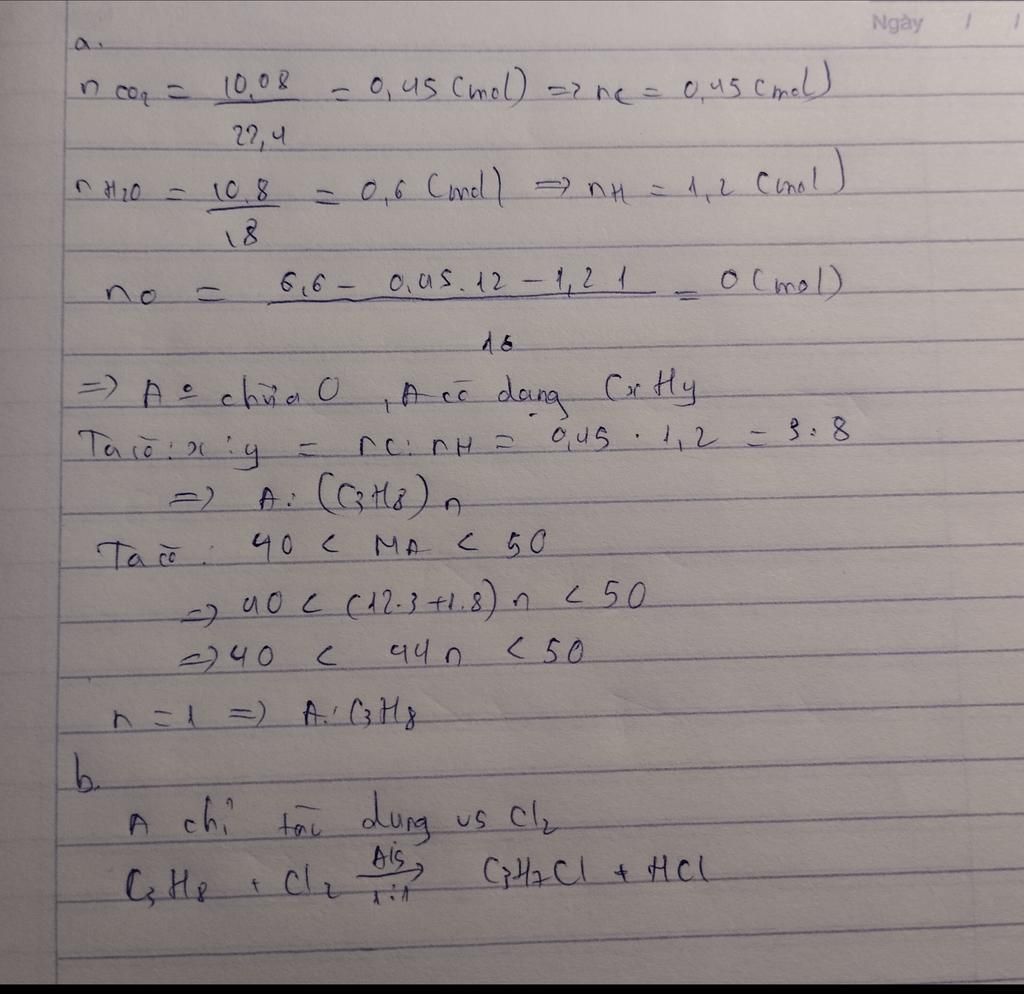 Ngày / /
a.
nCO2 = 10,08 / 22,4 = 0,45 (mol) => nC = 0,45 (mol)
nH2O = 10,8 / 18 = 0,6 (mol) => nH = 1,2 (mol)
nO = 6,6 - 0,45.12 - 1,2 1 / 16 = 0 (mol)
=> A º chứa O , A có dạng CxHy
Ta có : x : y = nC : nH = 0,45 . 1,2 = 3 : 8
=> A : (C3H8)n
Ta có : 40 < MA < 50
=> 40 < (12.3+1.8) n < 50
=> 40 < 44n < 50
n = 1 => A : C3H8
b.
A chỉ tác dụng vs Cl2
C3H8 + Cl2 A/s → 1:1 C3H7Cl + HCl